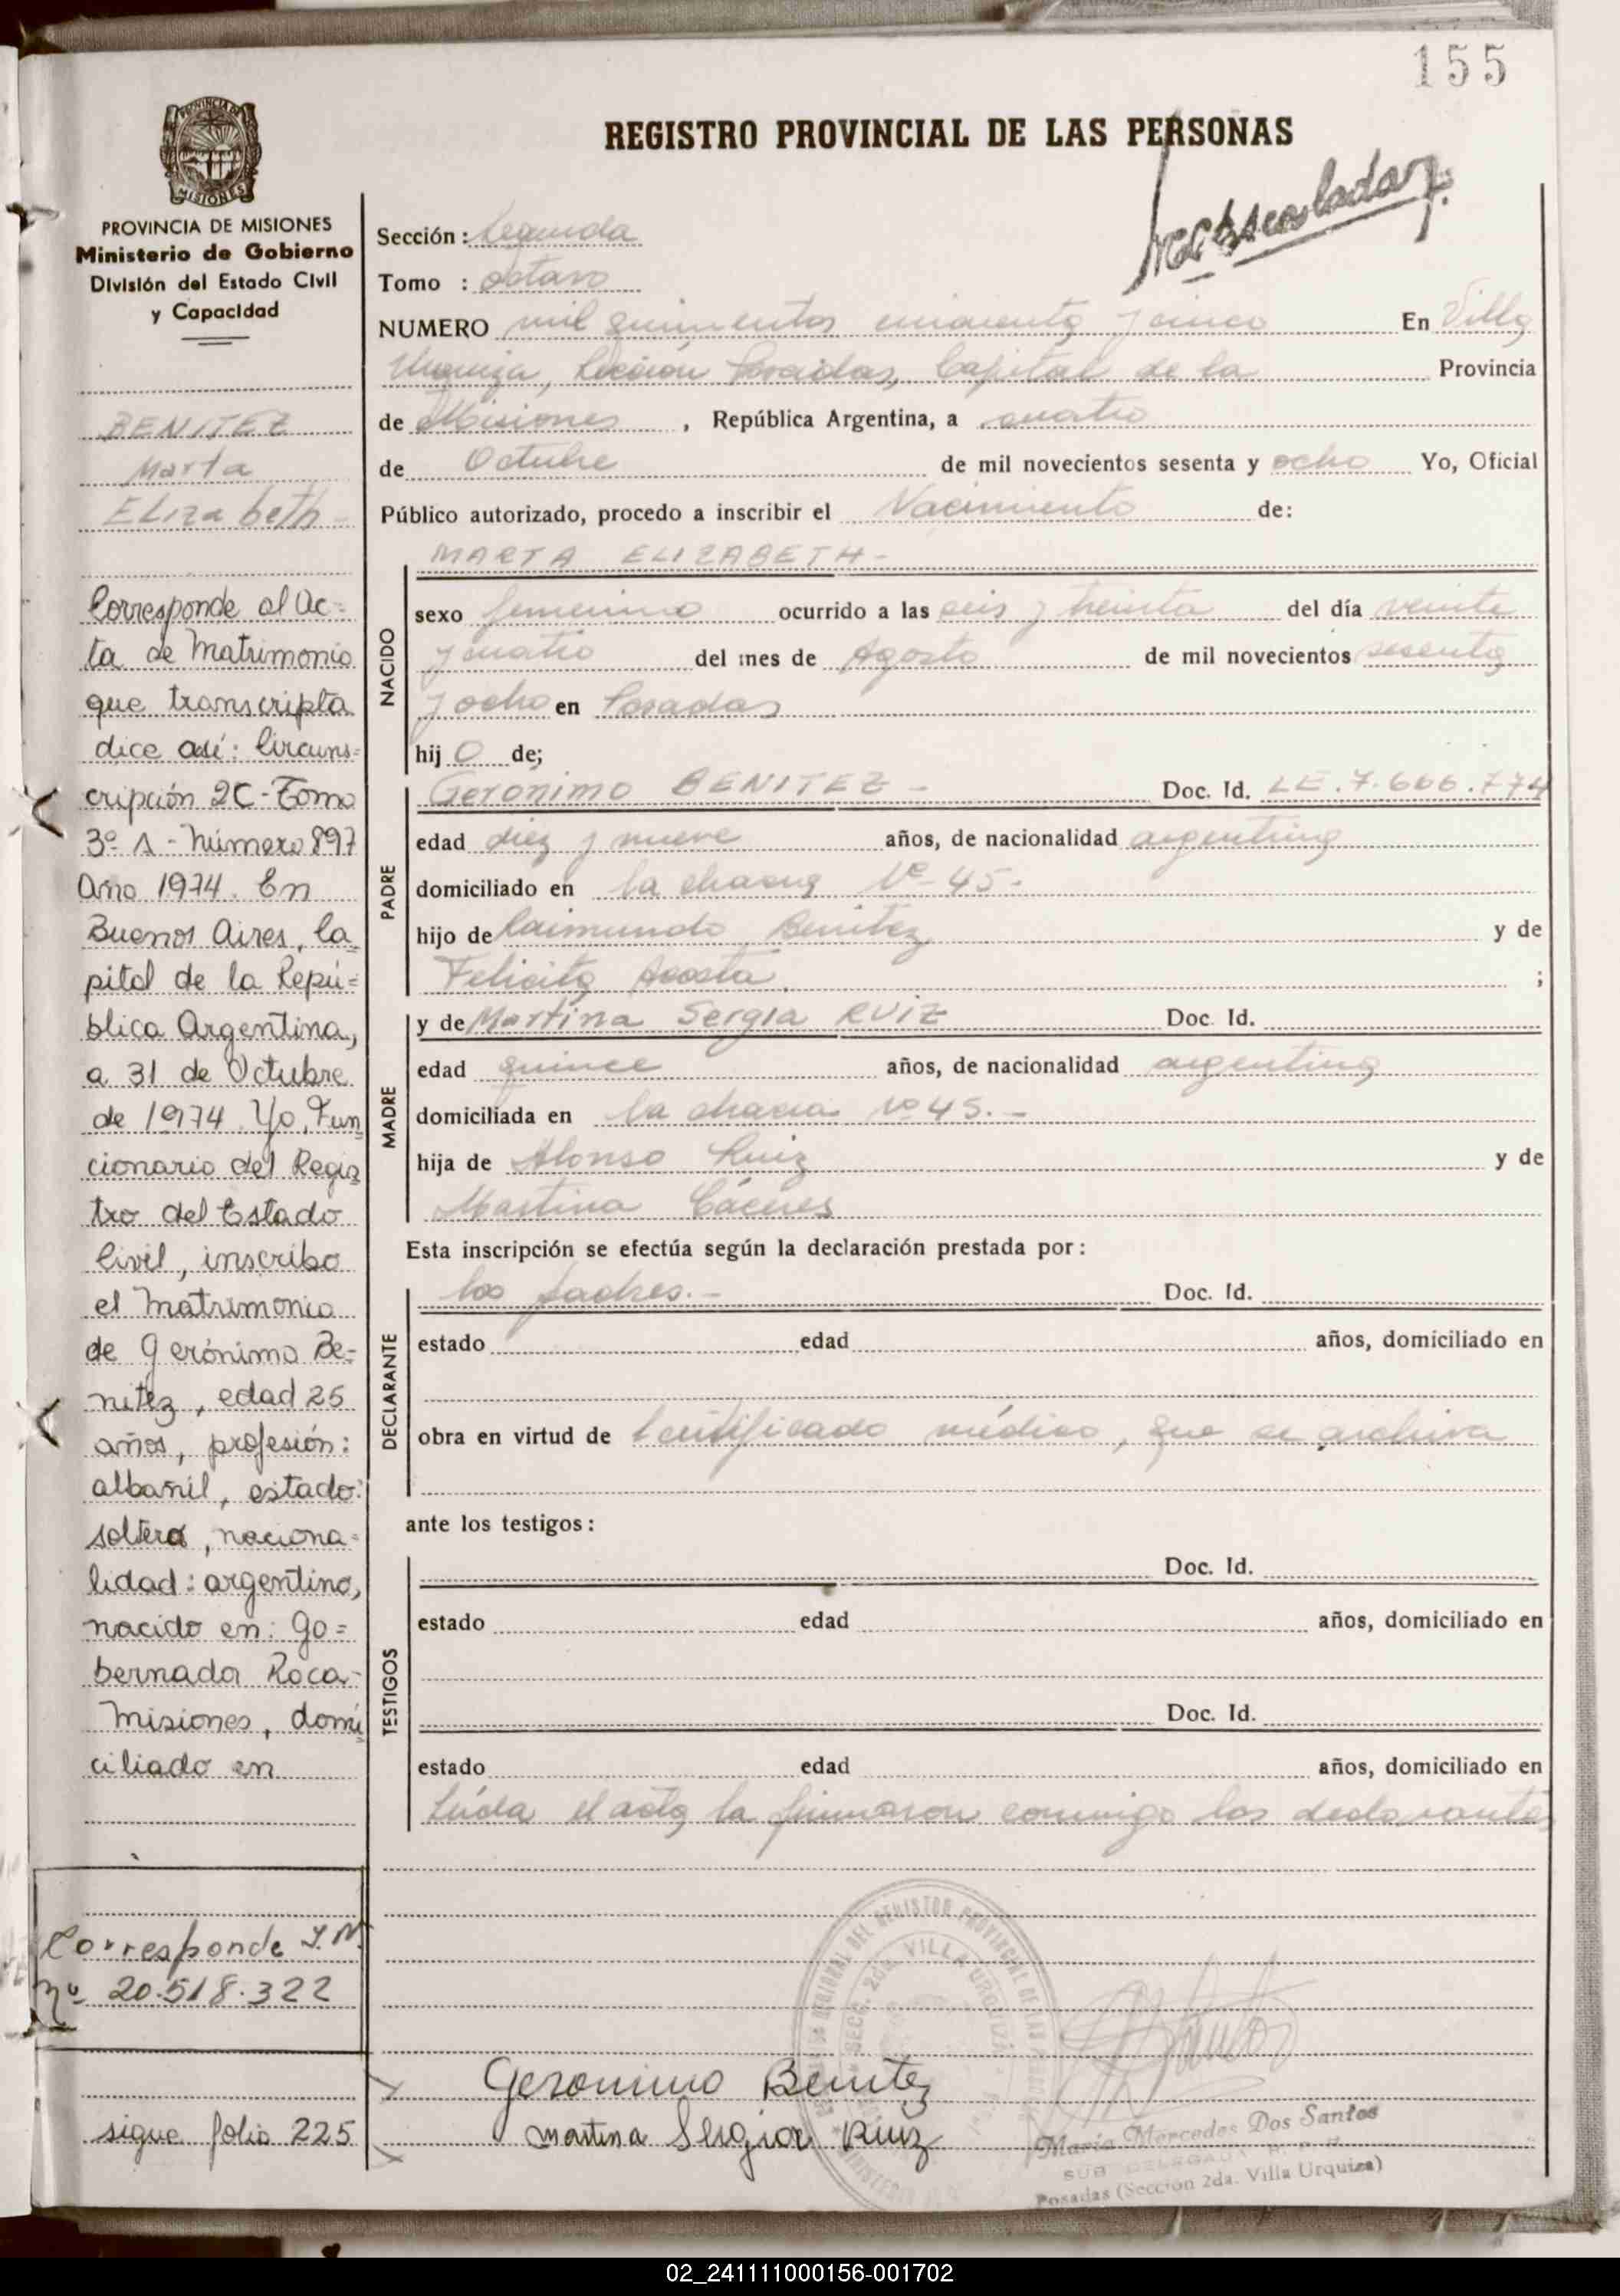 155
REGISTRO PROVINCIAL DE LAS PERSONAS
PROVINCIA DE MISIONES
MISIONES
PROVINCIA DE MISIONES
Ministerio de Gobierno
División del Estado Civil
y Capacidad
BENITEZ
Marta
ELIZabeth-
Corresponde al Ac=
ta de Matrimonio
que transcripta
dice así: Circuns=
cripción 2C-Tomo
3º A-Número 897
Año 1974. En
Buenos Aires, Ca=
pital de la Repú=
blica Argentina,
a 31 de Octubre
de 1974. Yo, Fun
cionario del Regis
tro del Estado
Civil, inscribo
el Matrimonio
de Gerónimo Be=
nitez, edad 25
años, profesión:
albañil, estado:
soltero, naciona=
lidad: argentino,
nacido en: Go=
bernador Roca-
Misiones, domi
ciliado en
Corresponde I.N.
Nº 20.518.322
sigue folio 225
Sección: Segunda
Tomo : octavo
NUMERO mil quinientos cincuenta y cinco En Villa
Urquiza, Sección Posadas, Capital de la Provincia
de Misiones, República Argentina, a cuatro
de Octubre de mil novecientos sesenta y ocho Yo, Oficial
Público autorizado, procedo a inscribir el Nacimiento de:
NACIDO
MARTA ELIZABETH-
sexo femenino ocurrido a las seis y treinta del día veinte
y cuatro del mes de Agosto de mil novecientos sesenta
y ocho en Posadas
hij o de;
PADRE
Gerónimo BENITEZ - Doc. Id. LE.7.606.774
edad diez y nueve años, de nacionalidad argentina
domiciliado en la chacra Nº 45-
hijo de Raimundo Benitez y de
Felicita Acosta ;
MADRE
y de Martina Sergia RUIZ Doc. Id.
edad quince años, de nacionalidad argentina
domiciliada en la chacra Nº 45.-
hija de Alonso Ruiz y de
Martina Cáceres
Esta inscripción se efectúa según la declaración prestada por:
DECLARANTE
los padres.- Doc. Id.
estado edad años, domiciliado en
obra en virtud de Certificado médico, que se archiva
ante los testigos:
TESTIGOS
Doc. Id.
estado edad años, domiciliado en
Doc. Id.
estado edad años, domiciliado en
Leída el acta, la firmaron conmigo los declarantes
SECC. 2da. VILLA URQUIZA
Geronimo Benitez
martina Sergia Ruiz
María Mercedes Dos Santos
SUB DELEGADA
Posadas (Sección 2da. Villa Urquiza)
02_241111000156-001702